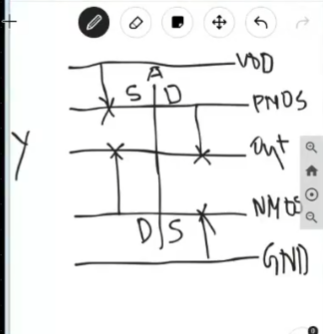 VDD
A
S D
PMOS
Y
Out
NMOS
D S
GND